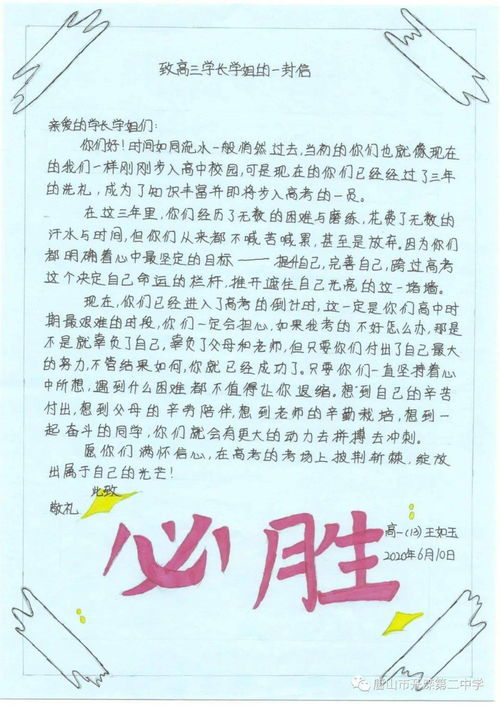 致高三学长学姐的一封信
亲爱的学长学姐们：
你们好！时间如同流水一般悄然过去，当初的你们也就像现在
的我们一样刚刚步入高中校园，可是现在的你们已经经过了三年
的洗礼，成为了知识丰富并即将步入高考的一员。
在这三年里，你们经历了无数的困难与磨练，花费了无数的
汗水与时间，但你们从来都不喊苦喊累，甚至是放弃。因为你们
都明确着心中最坚定的目标——提升自己，完善自己，跨过高考
这个决定自己命运的栏杆，推开遮住自己光亮的这一堵墙。
现在，你们已经进入了高考的倒计时，这一定是你们高中时
期最艰难的时段，你们一定会担心，如果我考的不好怎么办，那是
不是就辜负了自己，辜负了父母和老师，但只要你们付出了自己最大
的努力，不管结果如何，你就已经成功了。只要你们一直坚持着心
中所想，遇到什么困难都不值得让你退缩。想到自己的辛苦
付出，想到父母的辛劳陪伴，想到老师的辛勤栽培，想到一
起奋斗的同学，你们就会有更大的动力去拼搏去冲刺。
愿你们满怀信心，在高考的考场上披荆斩棘，绽放
出属于自己的光芒！
此致
敬礼
必胜
高一(13) 王如玉
2020年6月10日
唐山市开滦第二中学